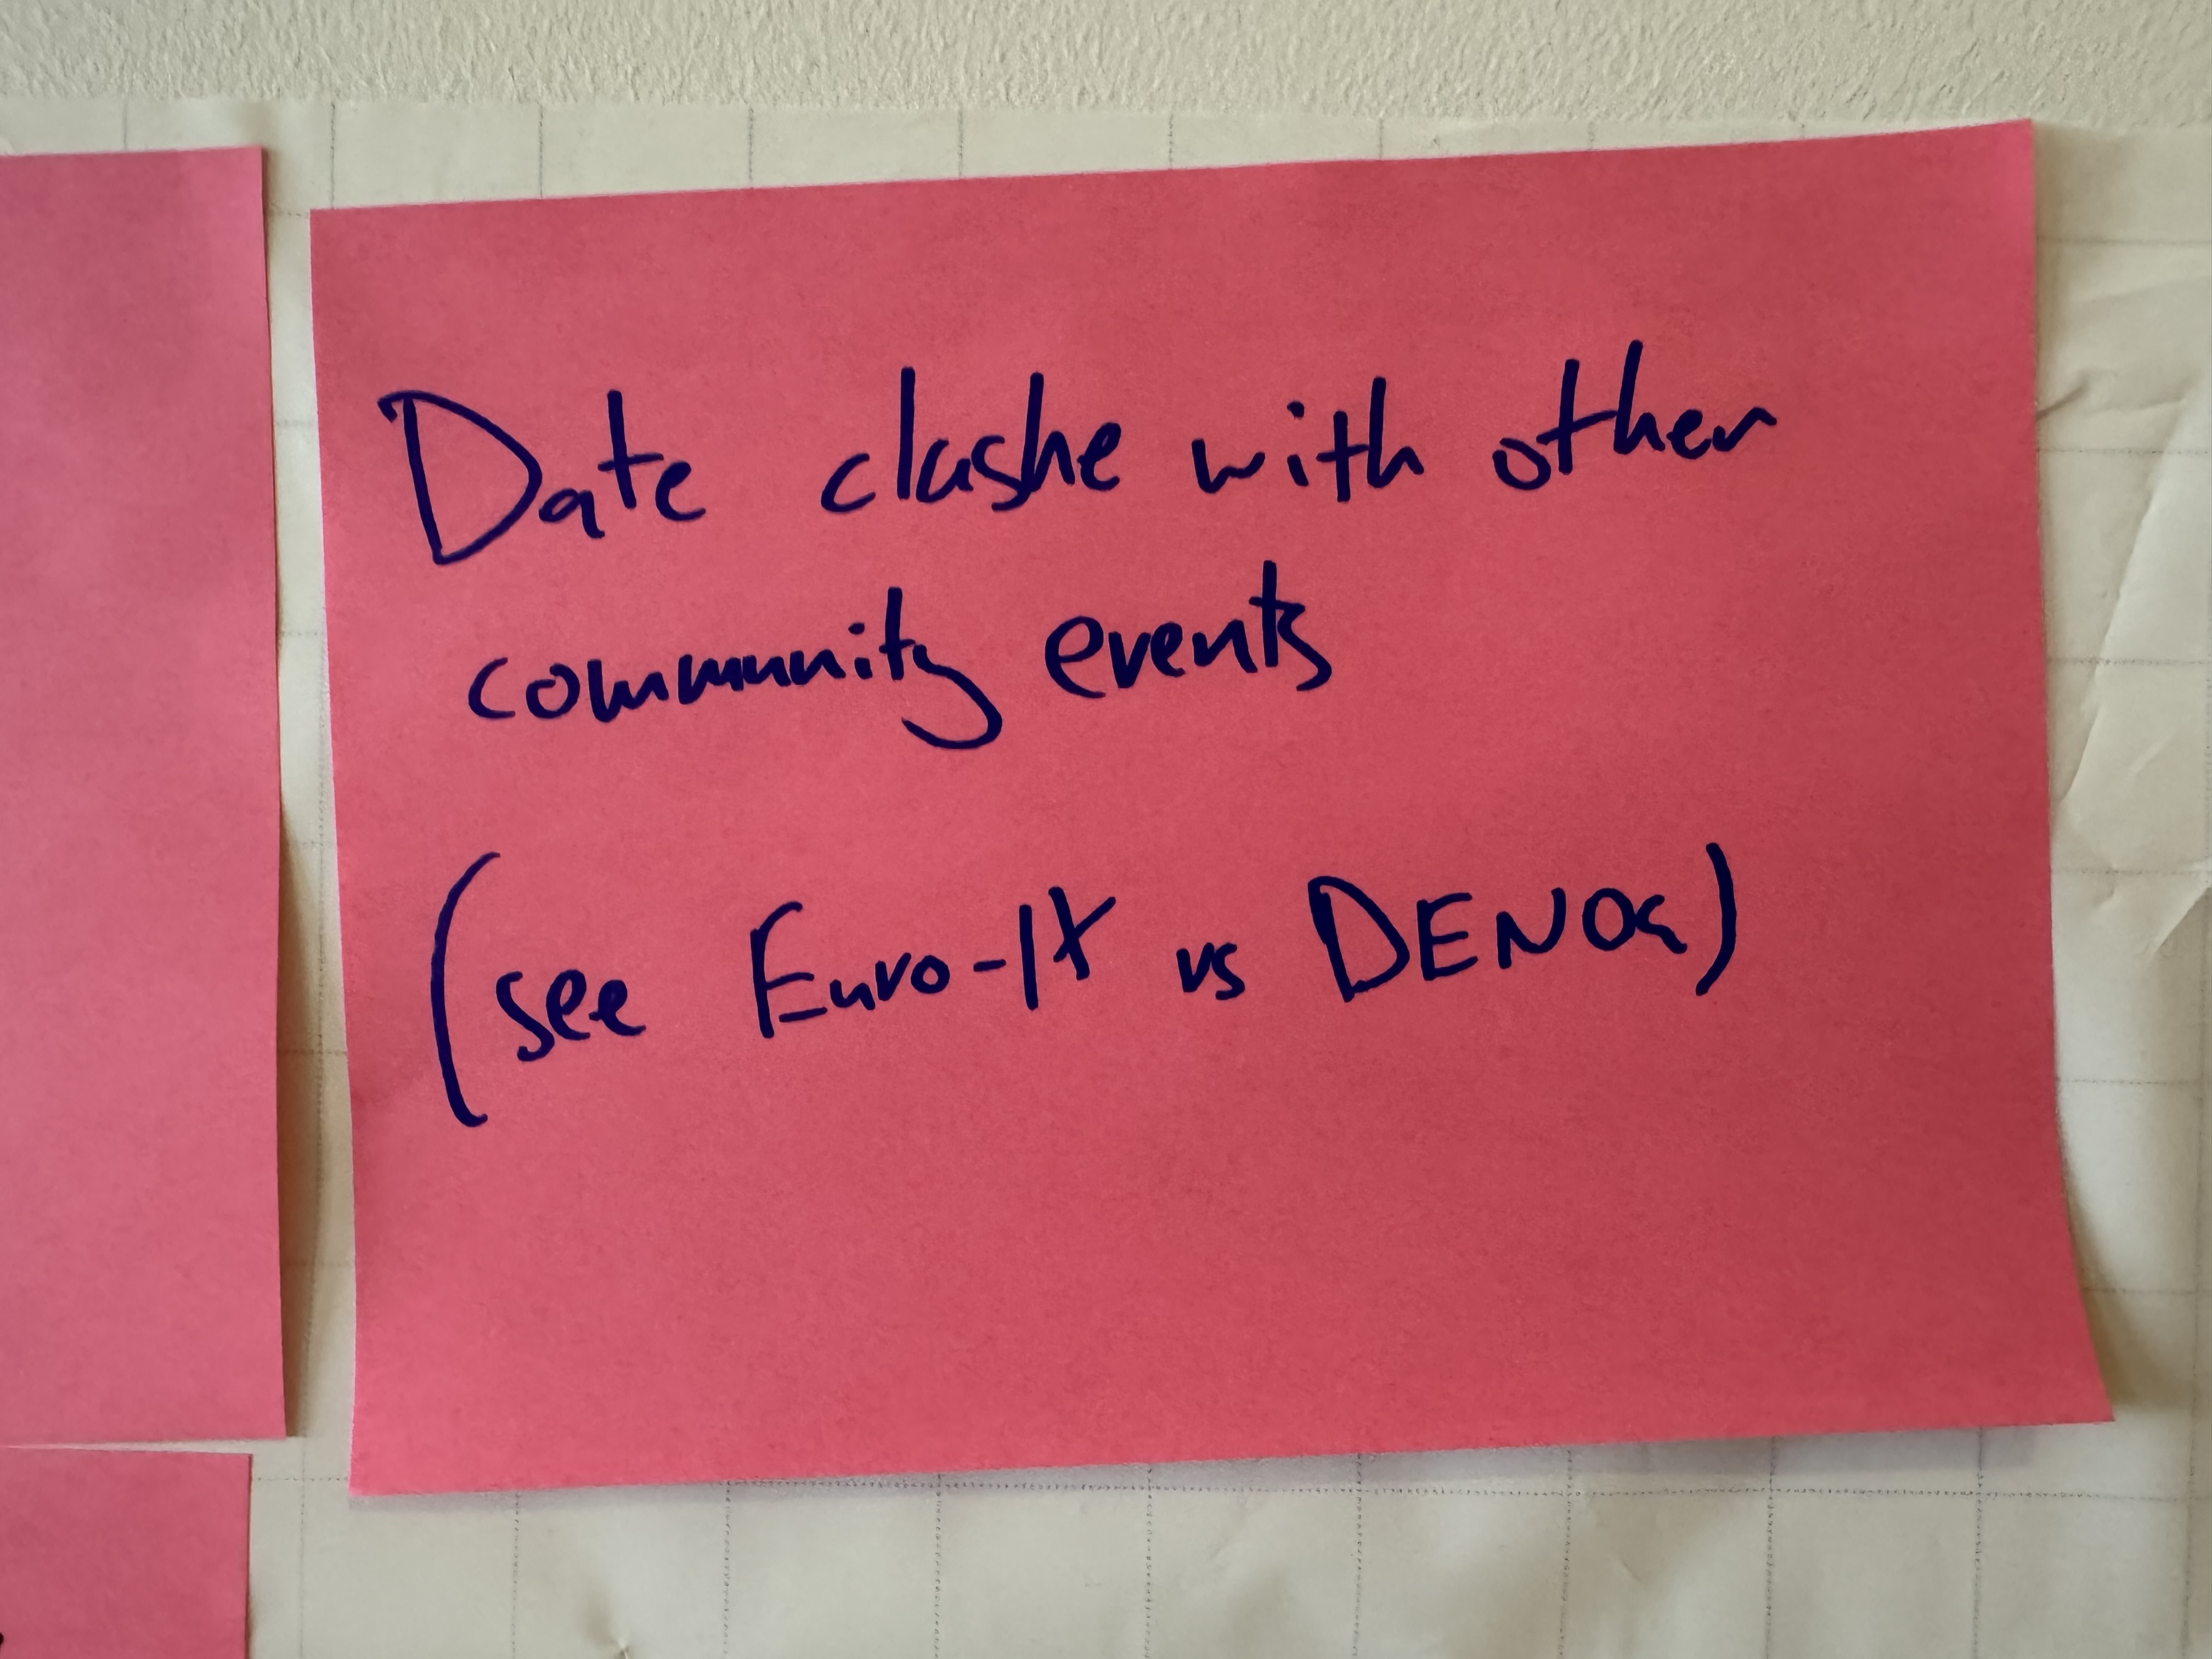 Date clashe with other
community events
(see Euro-IX vs DENOG)